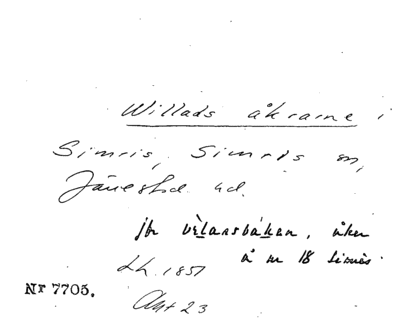 Willads åkrarne i
Simris, Simris sn,
Järrestad hd.
jfr vèlansbáken, åker
å nr 18 Simris.
Lh. 1851
Akt 23
Nr 7705.